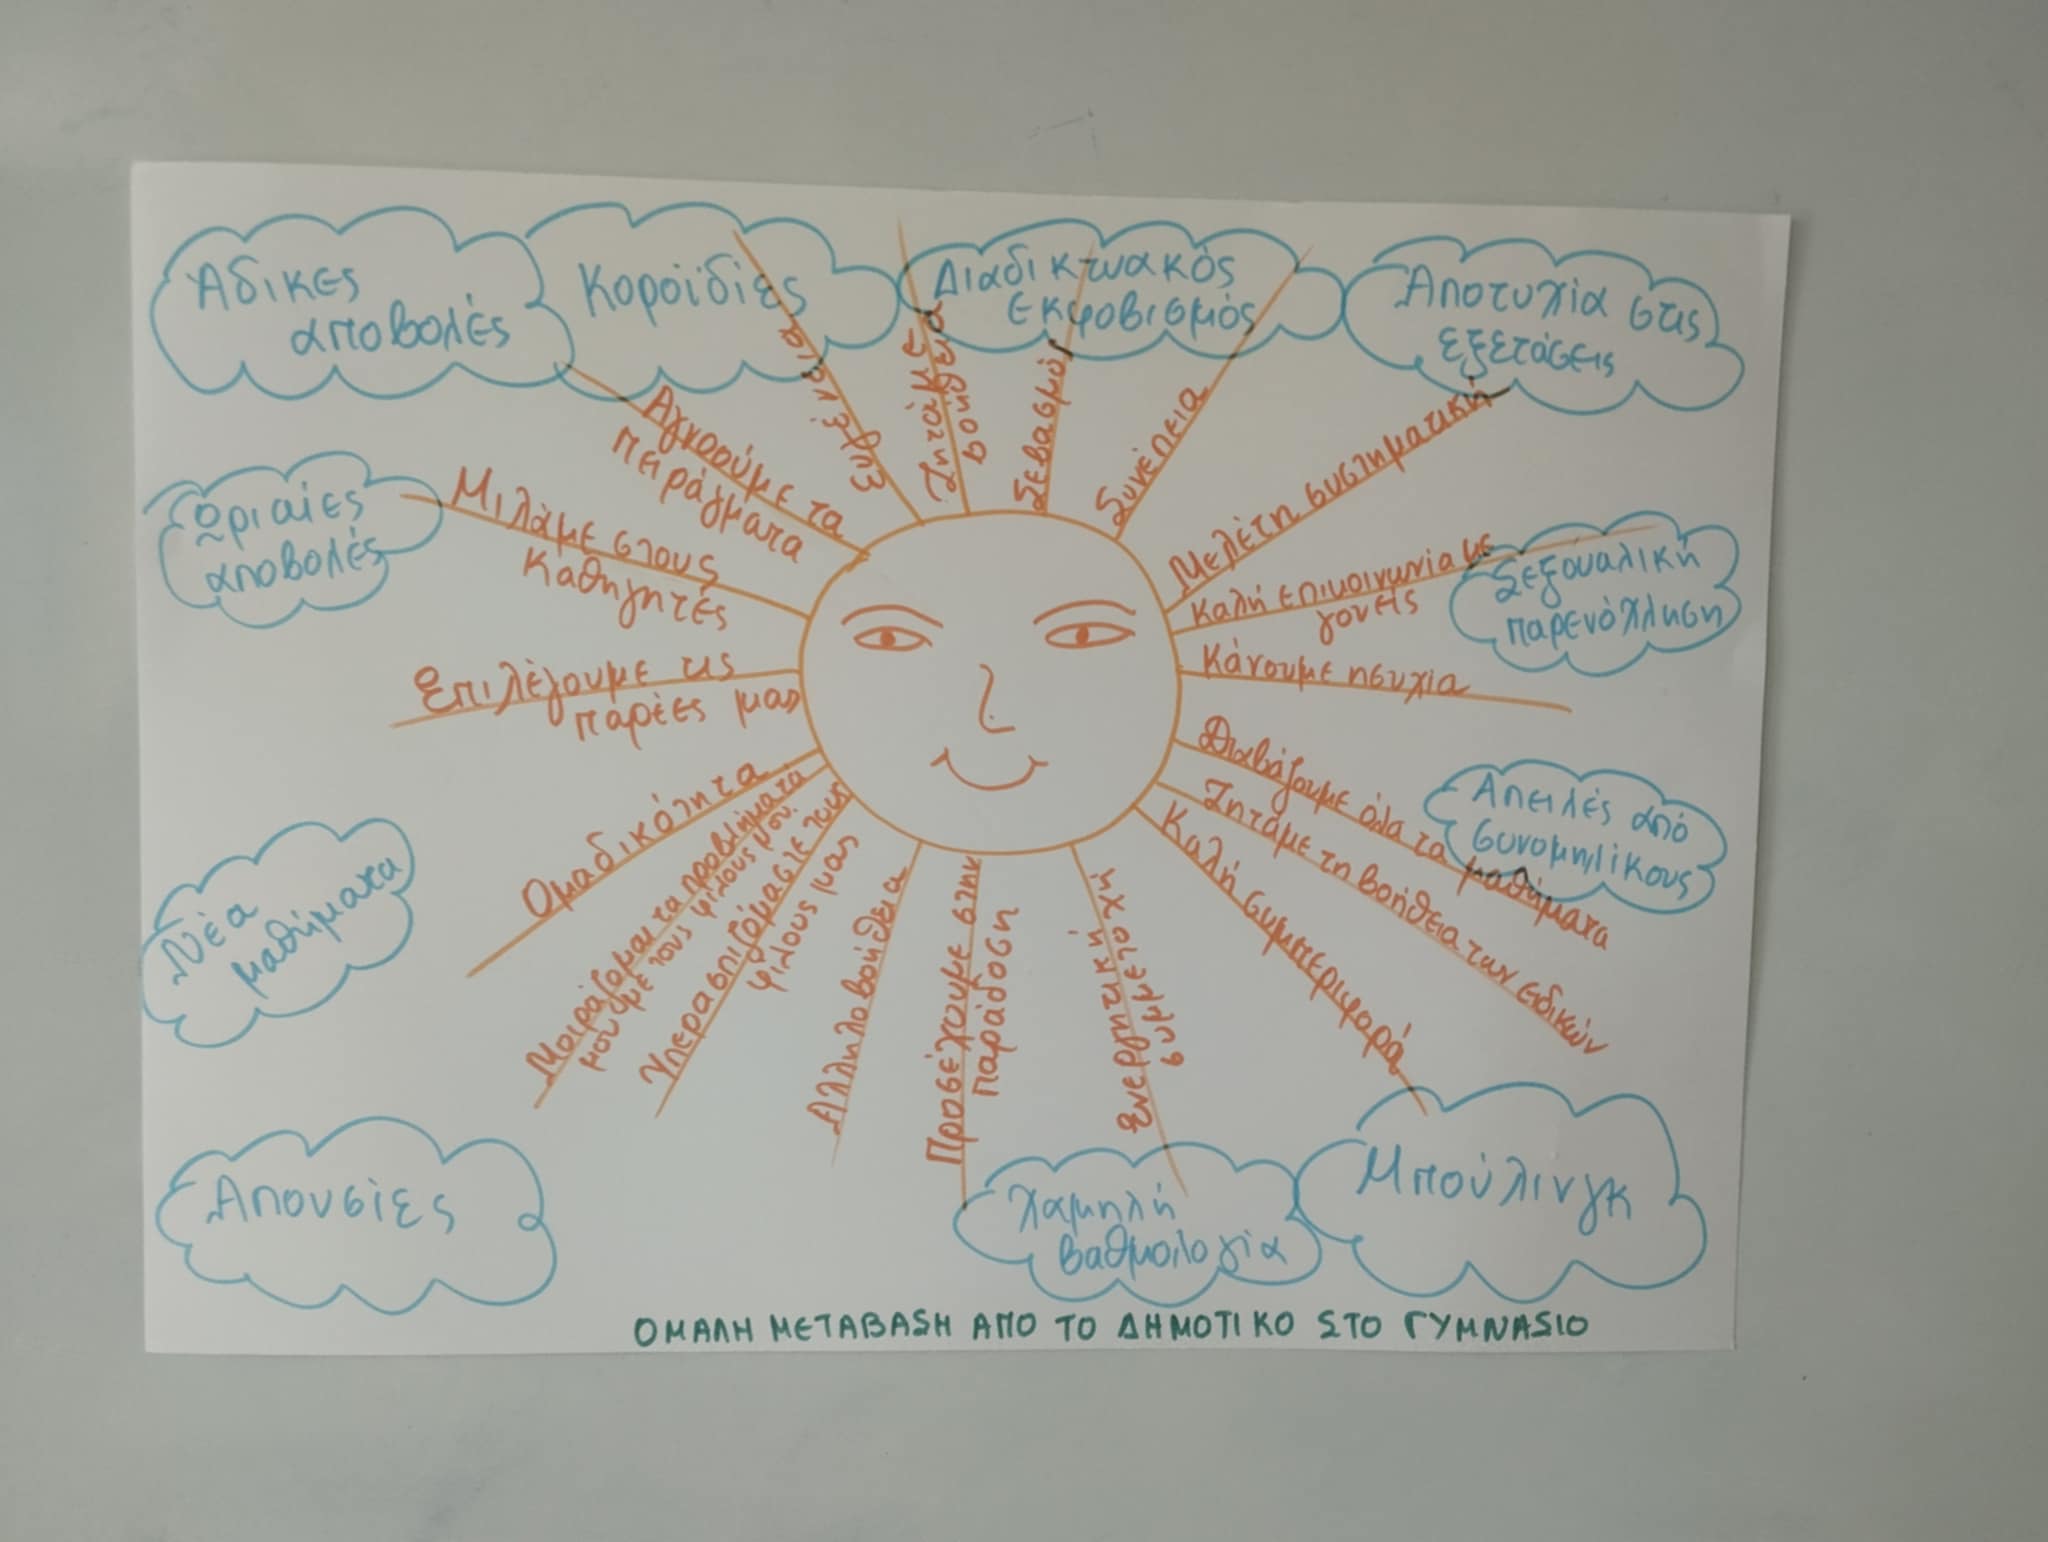 Άδικες
αποβολές
Κοροϊδίες
Διαδικτυακός
εκφοβισμός
Αποτυχία στις
εξετάσεις
Ωριαίες
αποβολές
Σεξουαλική
παρενόχληση
Απειλές από
συνομηλίκους
Νέα
μαθήματα
Απουσίες
Χαμηλή
βαθμολογία
Μπούλινγκ
Αγνοούμε τα
πειράγματα
Ευγένεια
Ζητάμε
βοήθεια
Σεβασμό
Συνέπεια
Μελέτη συστηματική
Καλή επικοινωνία με
γονείς
Κάνουμε ησυχία
Διαβάζουμε όλα τα μαθήματα
Ζητάμε τη βοήθεια των ειδικών
Καλή συμπεριφορά
Ενεργητική
συμμετοχή
Προσέχουμε στην
παράδοση
Αλληλοβοήθεια
Υπερασπιζόμαστε τους
φίλους μας
Μοιράζομαι τα προβλήματα
μου με τους φίλους μου.
Ομαδικότητα
Επιλέγουμε τις
παρέες μας
Μιλάμε στους
καθηγητές
ΟΜΑΛΗ ΜΕΤΑΒΑΣΗ ΑΠΟ ΤΟ ΔΗΜΟΤΙΚΟ ΣΤΟ ΓΥΜΝΑΣΙΟ